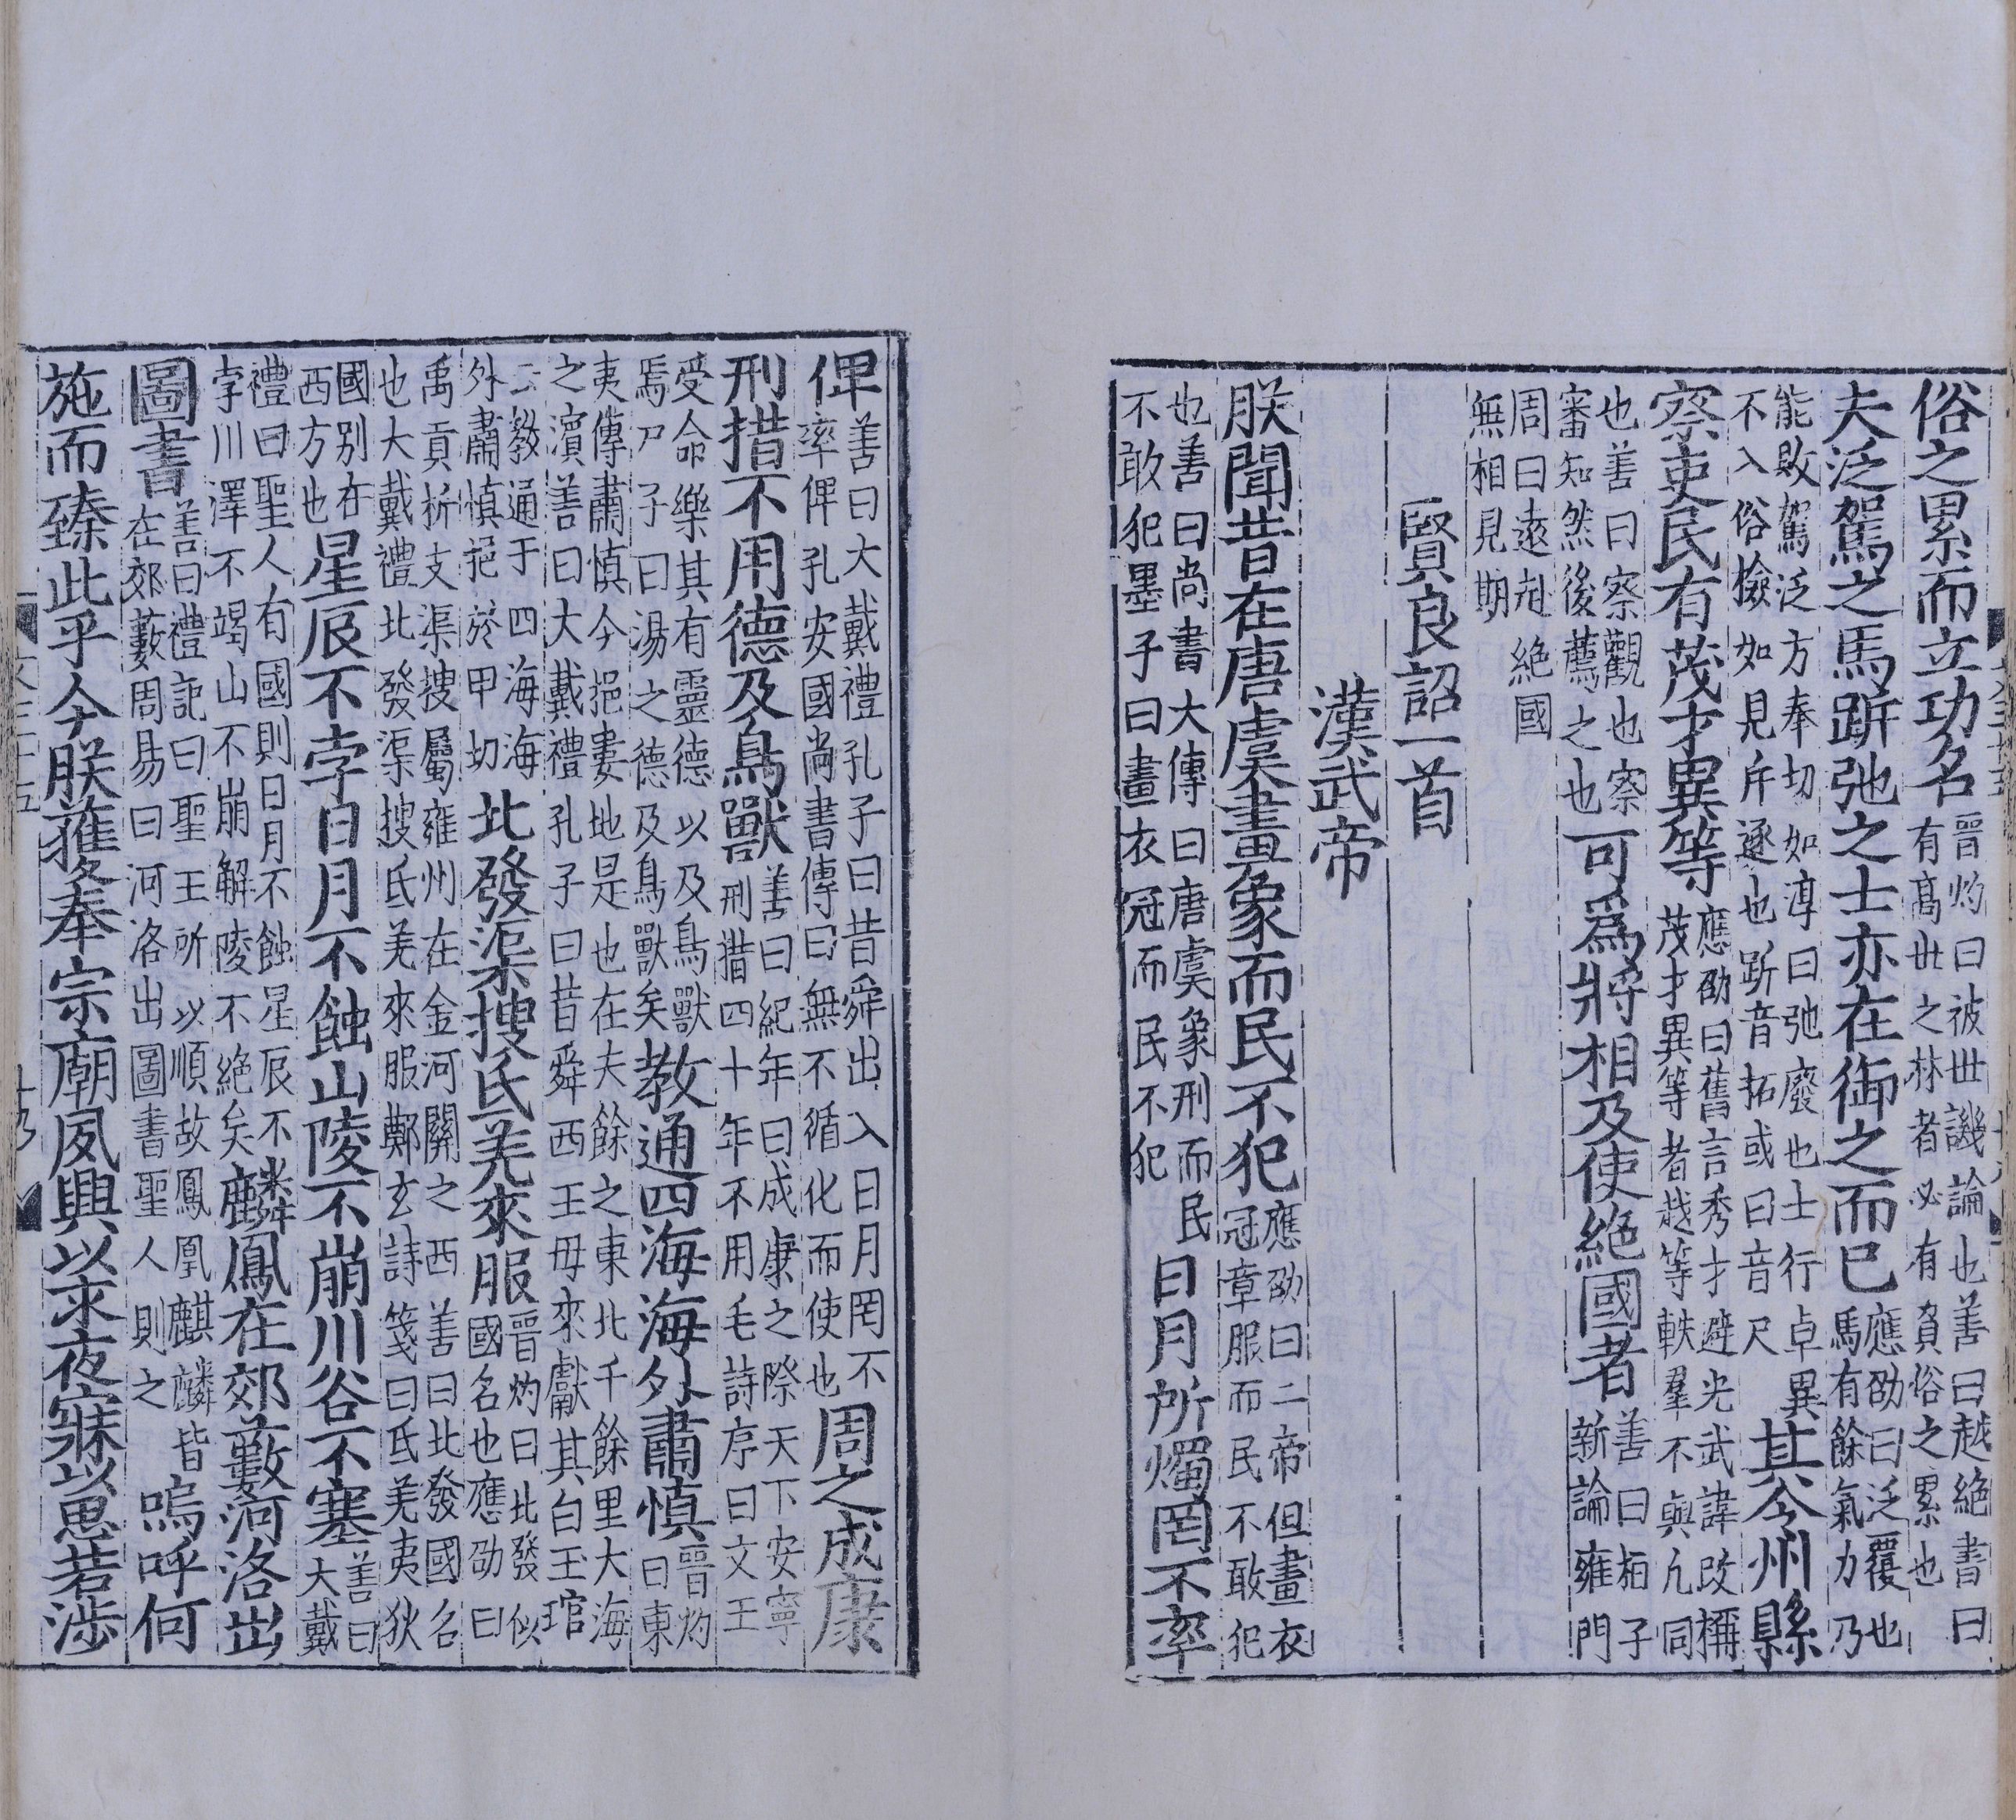 俗之累而立功名晉灼曰被世譏論也善曰越絕書曰有髙世之材者必有負俗之累也
夫泛駕之馬跅弛之士亦在御之而已應劭曰泛覆也馬有餘氣力乃
能敗駕泛方奉切如淳曰弛廢也士行卓異不入俗檢如見斥逐也跅音拓或曰音尺其令州縣
察吏民有茂才異等應劭曰舊言秀才避光武諱改稱茂才異等者越等軼羣不與凡同
也善曰察觀也察審知然後薦之也可爲將相及使絕國者善曰桓子新論雍門
周曰遠赴絕國無相見期
賢良詔一首
漢武帝
朕聞昔在唐虞畫象而民不犯應劭曰二帝但畫衣冠章服而民不敢犯
也善曰尚書大傳曰唐虞象刑而民不敢犯墨子曰畫衣冠而民不犯日月所燭罔不率
俾善曰大戴禮孔子曰昔舜出入日月罔不率俾孔安國尚書傳曰無不循化而使也周之成康
刑措不用德及鳥獸善曰紀年曰成康之際天下安寧刑措四十年不用毛詩序曰文王
受命樂其有靈德以及鳥獸焉尸子曰湯之德及鳥獸矣教通四海海外肅慎晉灼曰東
夷傳肅慎今挹婁地是也在夫餘之東北千餘里大海之濱善曰大戴禮孔子曰昔舜西王母來獻其白玉琯
云教通于四海海外肅慎挹於甲切北發渠搜氐羌來服晉灼曰北發似國名也應劭曰
禹貢析支渠搜屬雍州在金河關之西善曰北發國名也大戴禮北發渠搜氐羌來服鄭玄詩箋曰氐羌夷狄
國別在西方也星辰不孛日月不蝕山陵不崩川谷不塞善曰大戴
禮曰聖人有國則日月不蝕星辰不孛川澤不竭山不崩解陵不絕矣麟鳳在郊藪河洛出
圖書善曰禮記曰聖王所以順故鳳凰麒麟皆在郊藪周易曰河洛出圖書聖人則之嗚呼何
施而臻此乎今朕獲奉宗廟夙興以求夜寐以思若涉